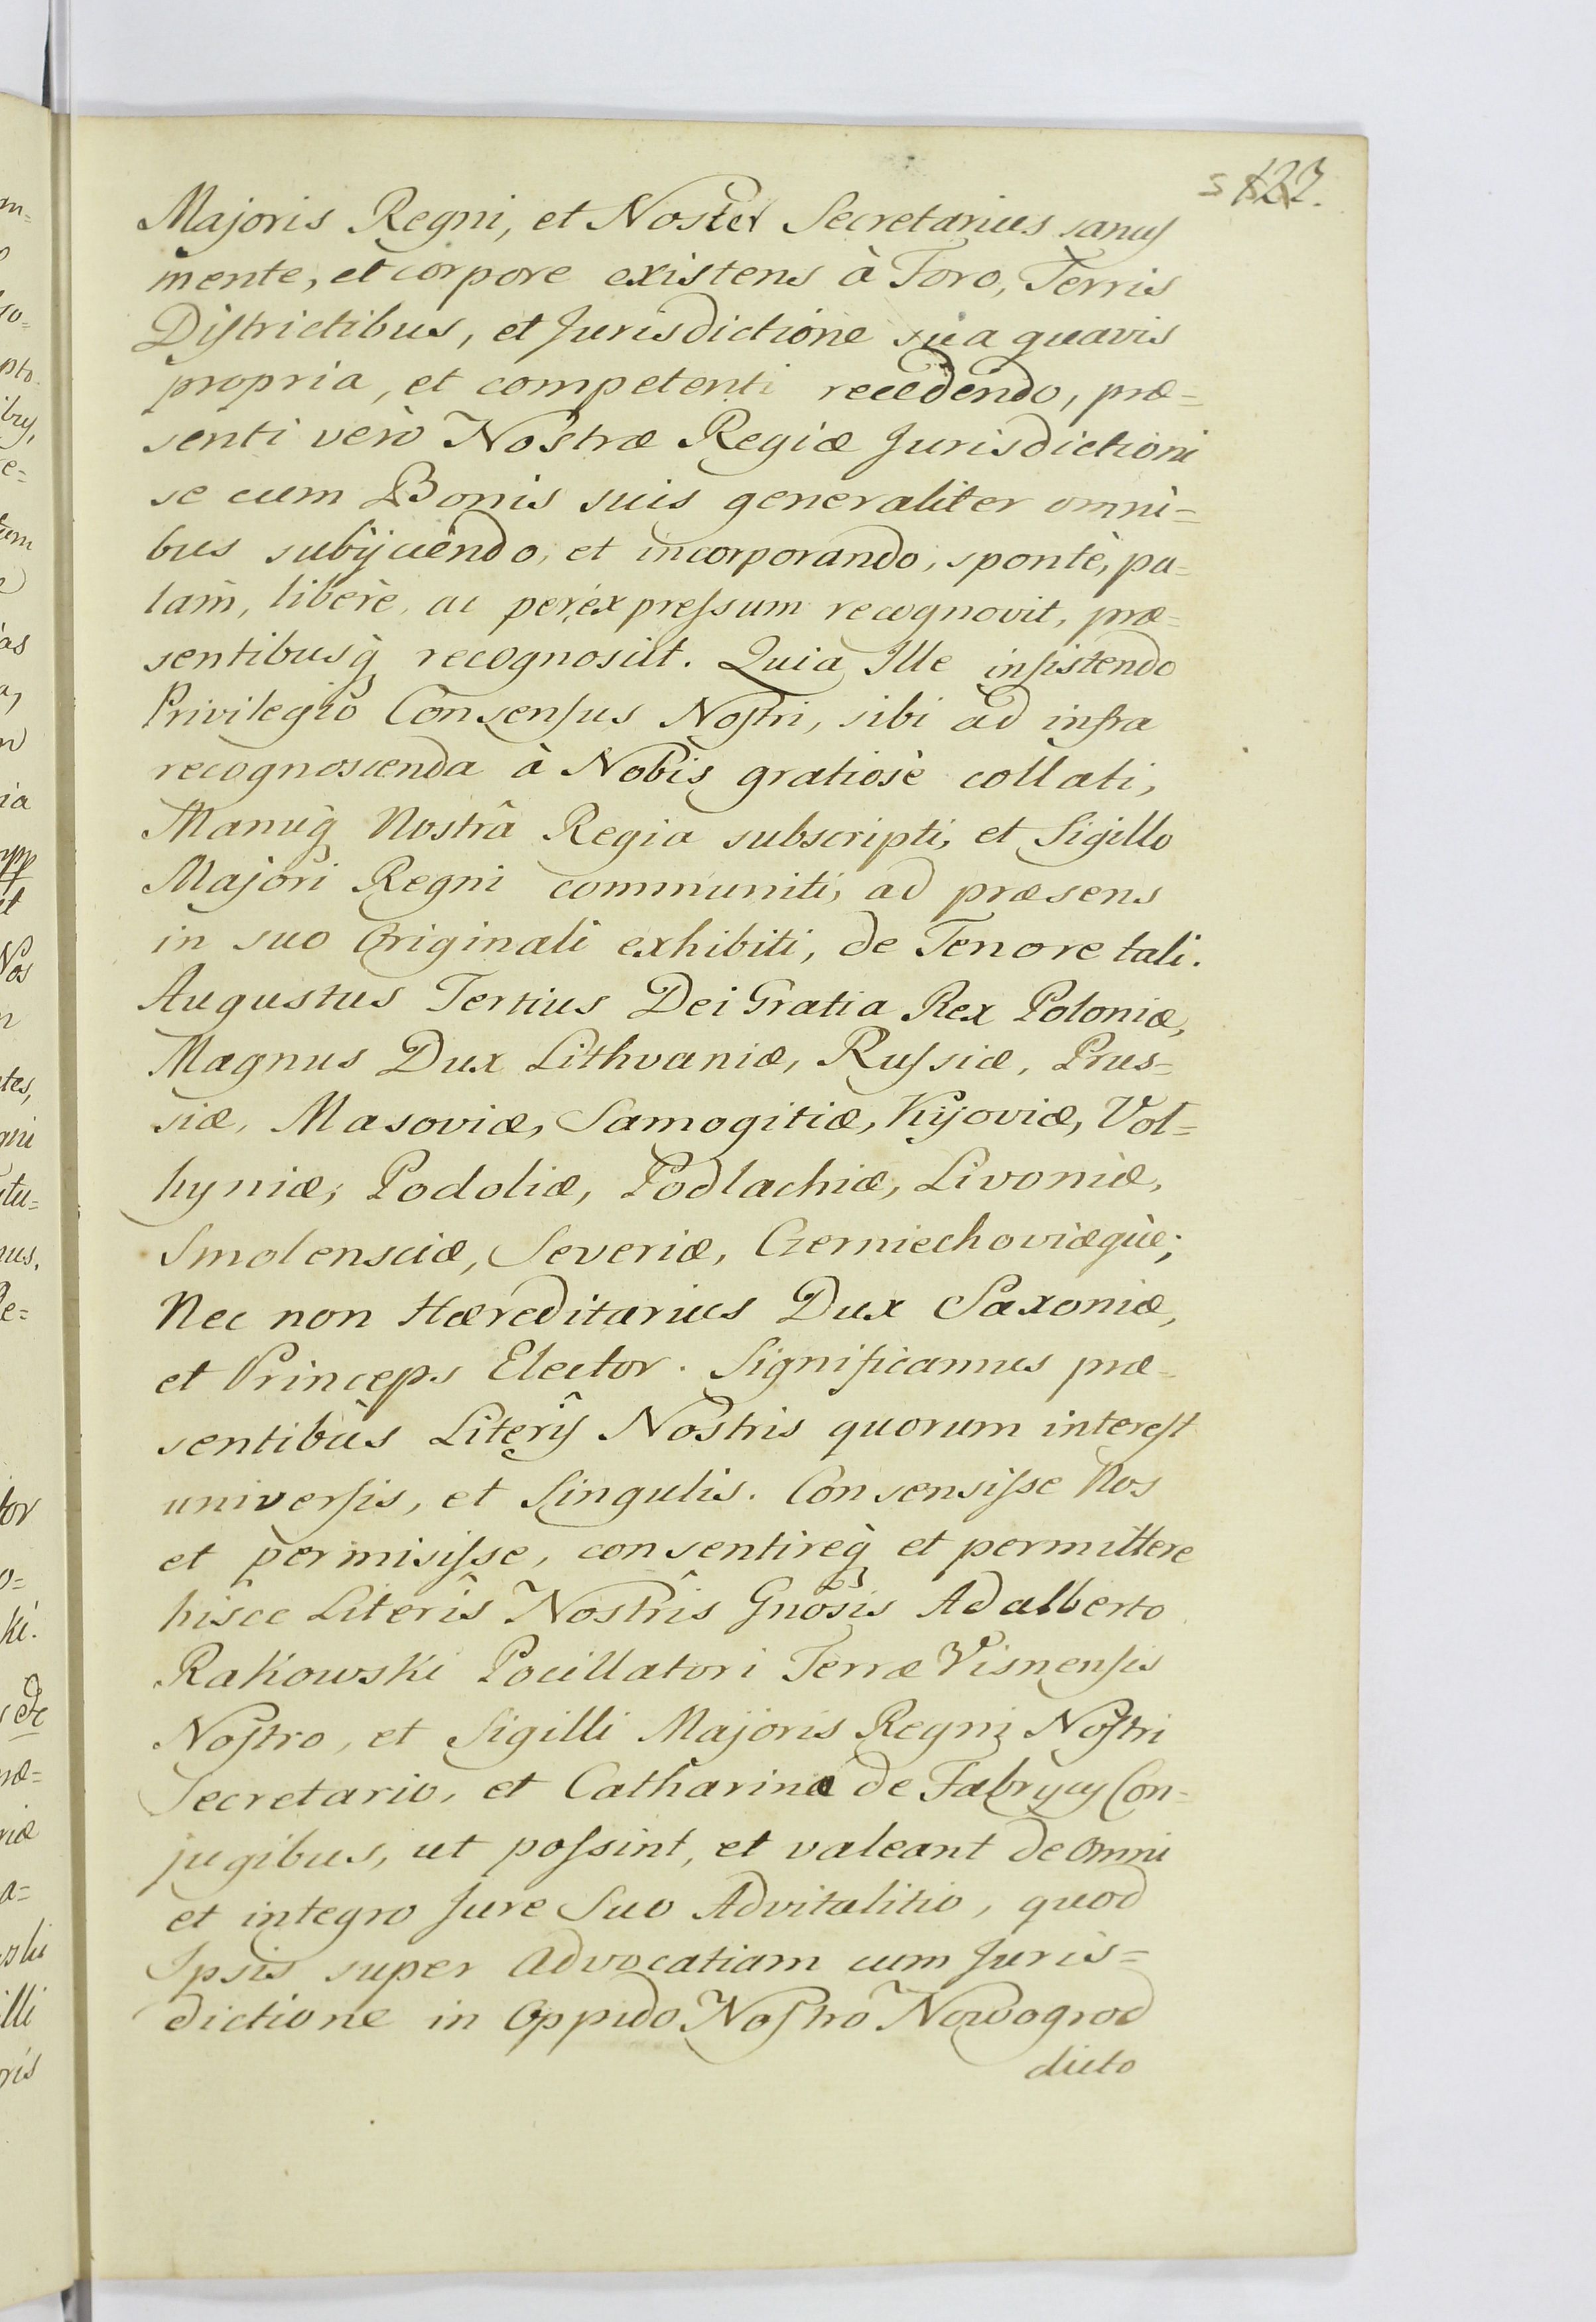 123.
Majoris Regni, et Noster Secretarius sanus
mente, et corpore existens à Foro, Terris
Districtibus, et Jurisdictione sua quavis
propria, et competenti recedendo, præ=
senti verò Nostræ Regiæ Jurisdictioni
se cum Bonis suis generaliter omni=
bus subijciendo, et incorporando, spontè, pa=
lam, liberè, ac perexpressum recognovit, præ=
sentibusq̀ recognoscit. Quia Ille insistendo
Privilegio Consensus Nostri, sibi ad infra
recognoscenda à Nobis gratiosè collati,
Manuq̀ Nostrâ Regia subscripti, et Sigillo
Majori Regni communiti, ad præsens
in suo Originali exhibiti, de Tenore tali.
Augustus Tertius Dei Gratia Rex Poloniæ,
Magnus Dux Lithvaniæ, Russiæ, Prus=
siæ, Masoviæ, Samogitiæ, Kijoviæ, Vol=
hyniæ, Podoliæ, Podlachiæ, Livoniæ,
Smolensciæ, Severiæ, Czerniechoviæquè;
Nec non Hæreditarius Dux Saxoniæ,
et Princeps Elector. Significamus præ=
sentibus Literis Nostris quorum interest
universis, et Singulis. Consensisse Nos
et permisisse, consentireq̀ et permittere
hisce Literîs Nostrîs Gnosis Adalberto
Rakowski Pocillatori Terræ Visnensis
Nostro, et Sigilli Majoris Regni Nostri
Secretario, et Catharinæ de Fabrycy Con=
jugibus, ut possint, et valeant de omni
et integro Jure Suo Advitalitio, quod
Ipsis super Advocatiam cum Juris=
dictione in Oppido Nostro Nowogrod
dicto